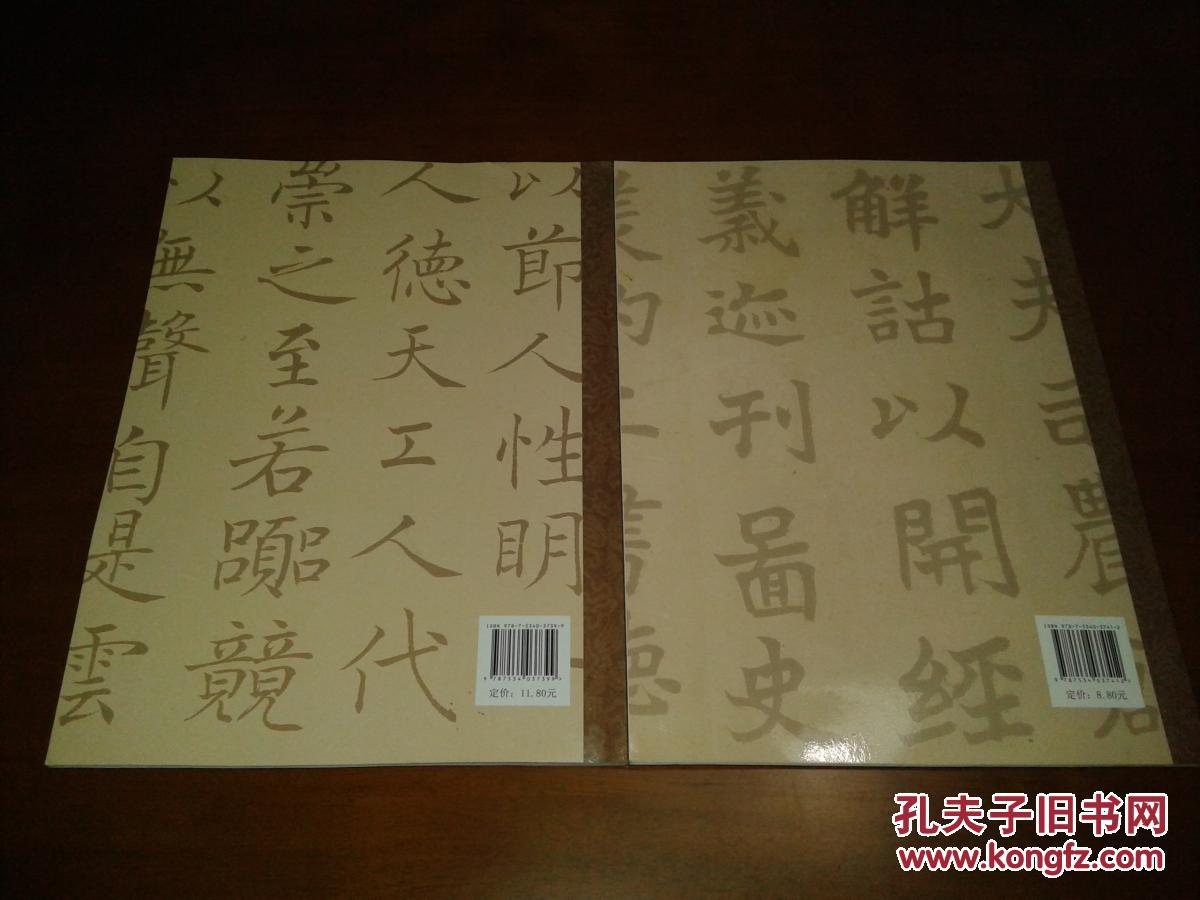 以節人性明
人德天工人代
崇之至若
競
以無聲自是雲
ISBN 978-7-5340-3739-9
9 787534 037399 >
定价：11.80元
大夫司農
解詁以開經
義迹刊圖史
美的工書德
ISBN 978-7-5340-3741-2
9 787534 037412 >
定价：8.80元
孔夫子旧书网
www.kongfz.com